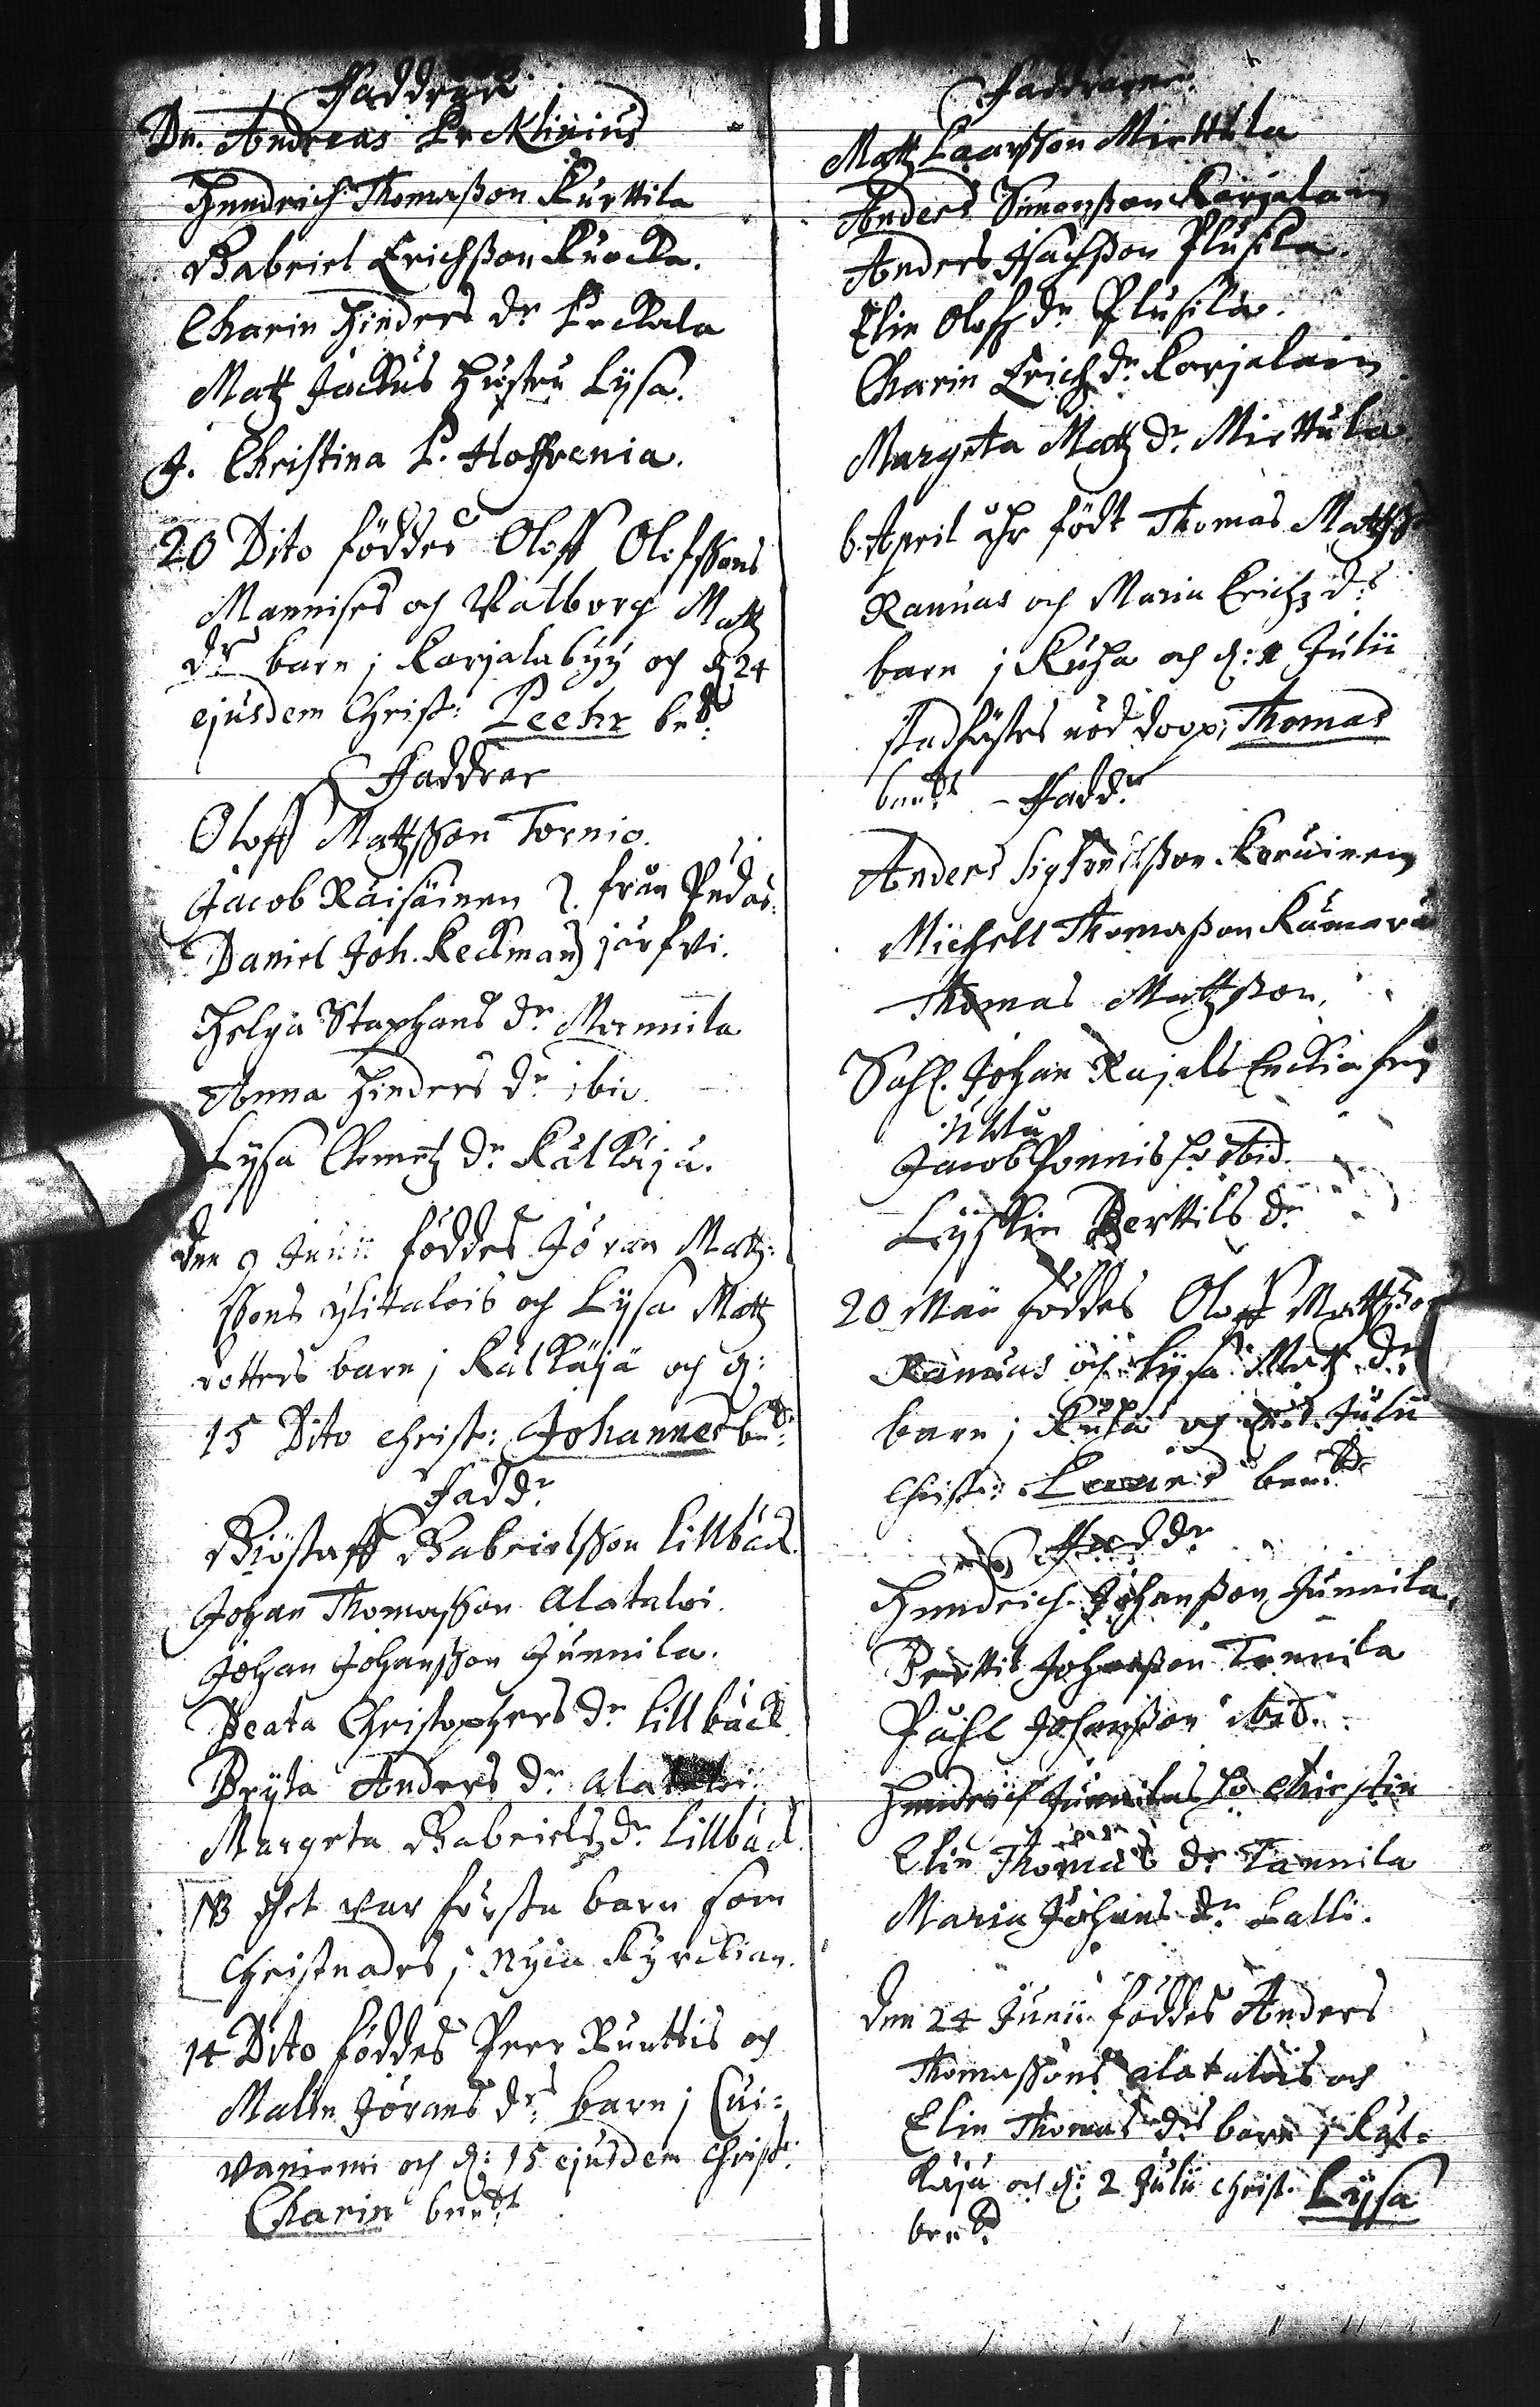 Faddrar
Dn. Andreas
Hendrich Thomaßon Kurttila
Gabriel Erichßon Kuocka.
Charin Hinders dr
Matz Jackus hustru Lysa.
J. Christina P. Hoffrenia.
20 Dito föddes Oloff Olofssons
Mannises och Valborg Matz
dr barn j Karjalabyy och d 24
ejusdem Christ: Peehr bnd:
Faddrar
Oloff Matzsson Tornio.
Jacob Räisäinen från Pudas:
Daniel Joh. Keckman järfvi.
Helga Staphans dr Mannila
Anna Hinders dr ibid.
Lysa Clemetz dr Kälkäjä.
den 9 Junii föddes Jöran Matz:
ssons Ylitalois och Lysa Matz
dotters barn j Kälkäjä och d:
15 Dito christ: Johannes bnd:
Faddr
Giöstaff Gabrielsson Lillbäck.
Johan Thomasson Alataloi.
Johan Johansson Junnila.
Beata Christophers dr Lillbäck
Bryta Anders dr Alataloi.
Margeta Gabrielz dr Lillbäck.
NB Het var första barn som
Christnades j Nyia Kyrckian.
14 Dito föddes Peer Ruuttis och
Malin Jörans drs barn j Cui=
vaniemi och d: 15 ejusdem Christ:
Charin bendt
Faddrarne.
Matz Laarsson Mirttula
Anders Simonßon Karjalain
Anders Isachßon Plusila.
Elin Oloffz dr Plusila.
Charin Erichz dr Karjalain.
Margeta Matz dr Mirttula.
6. April ähr födt Thomas Matzß
Rannas och Maria Erichz drs
barn j Kuha och d: Julii
stadfästes nöd doop, Thomas
bendt Faddr
Anders Sigfredßon Keruinen
Michell Thomaßon Kämärä
Thomas Matzßon.
Sahl. Johan Rajals Enckia
Jacob ibid.
Lysken Bertils dr
20 Maii föddes Oloff Mattzßon
Rannas och Lysa Matz drs
barn j och Julii
Christ: bend
Faddr
Hendrich Johanßon Junnila.
Bertil Johanßon Tannila
Påhl Johanßon ibid.
Hendrich Junnilas ho Chirstin
Elin Thomas dr Tannila
Maria Johans dr Lalli.
den 24 Junii föddes Anders
Thomassons alatalois och
Elin Thomas drs barn j Käl=
käjä och d: 2 Julii christ. Lysa
bend